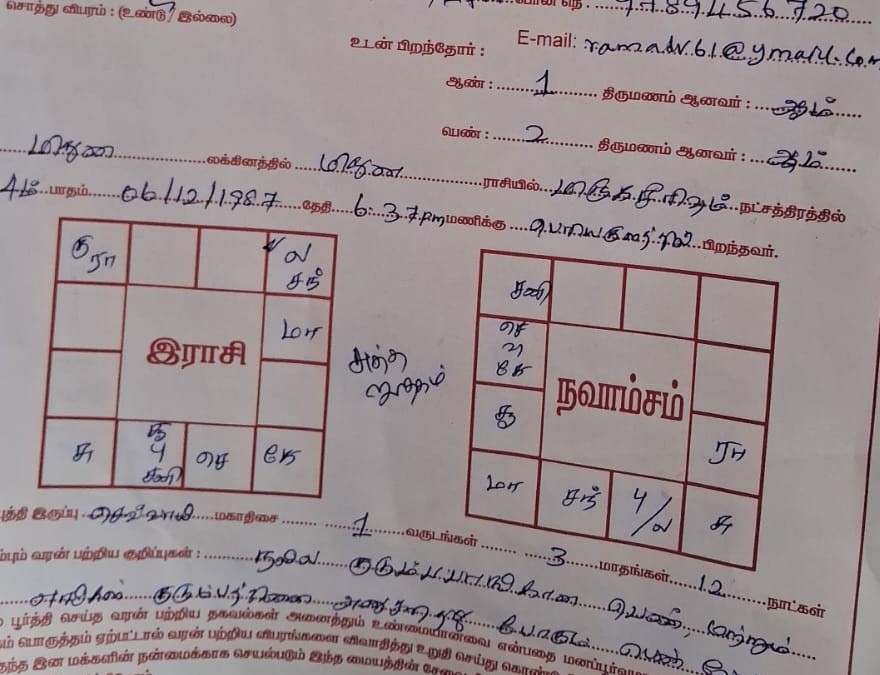 சொத்து விபரம் : (உண்டு / இல்லை)
7789456720
உடன் பிறந்தோர் : E-mail: ramadv.61@ymail.com
ஆண் : 1 திருமணம் ஆனவர் : ஆம்
பெண் : 2 திருமணம் ஆனவர் : ஆம்
மிதுன லக்கினத்தில் மிதுன ராசியில் மிருகசீரிஷம் நட்சத்திரத்தில்
4ம் பாதம் 06/12/1987 தேதி 6.37pm மணிக்கு பிறந்தவர்.
கு ரா
ல சந்
மா
இராசி
சு
சூ பு சனி
செ
கே
சனி
செ கே
நவாம்சம்
சூ
ரா
மா
சந்
பு/ல
சு
புத்தி இருப்பு செவ்வாய் மகாதிசை 1 வருடங்கள் 3 மாதங்கள் 12 நாட்கள்
வரன் பற்றிய குறிப்புகள் : நல்ல பெண், மற்றும்
பூர்த்தி செய்த வரன் பற்றிய தகவல்கள் அனைத்தும் உண்மையானவை என்பதை
பொருத்தம் ஏற்பட்டால் வரன் பற்றிய விபரங்களை விவாதித்து உறுதி செய்து
இன மக்களின் நன்மைக்காக செயல்படும் இந்த மையத்தின்